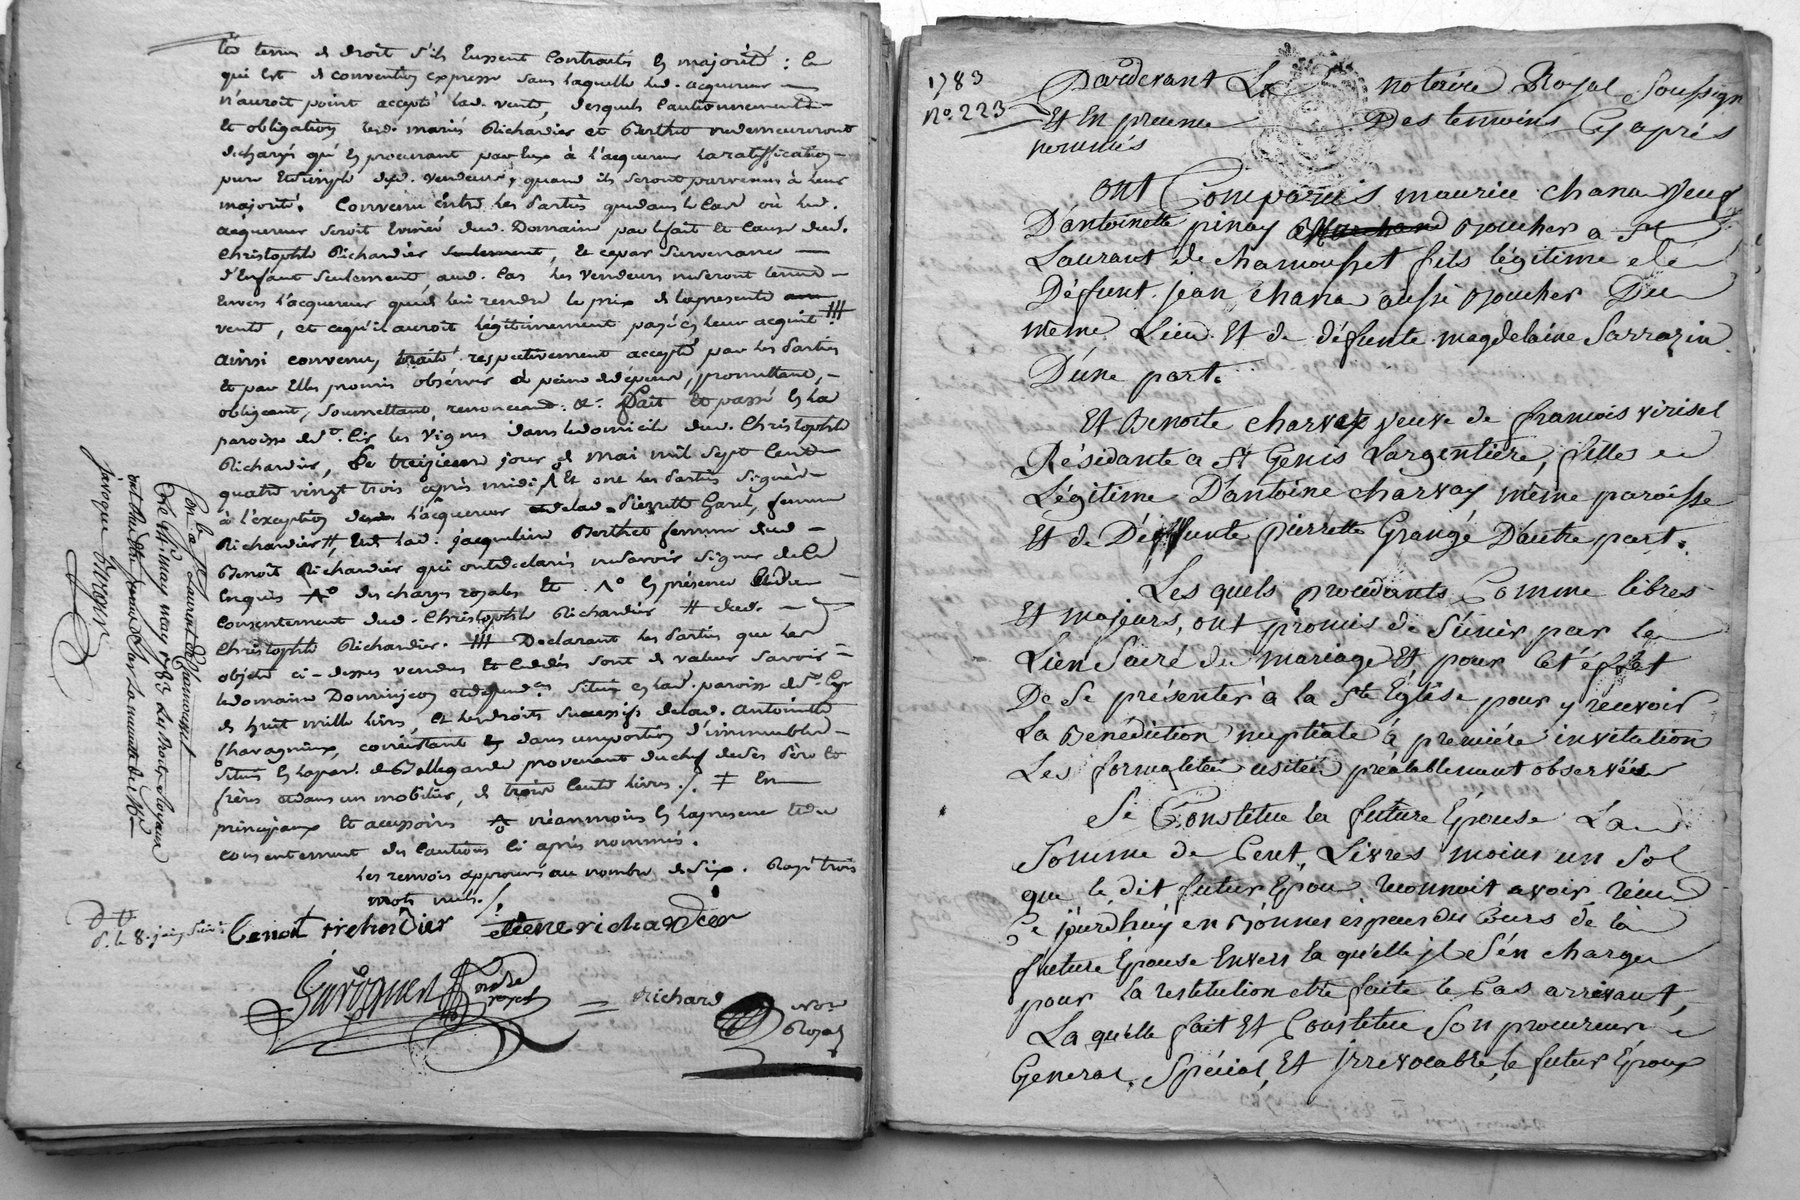 les termes de droit s'ils eussent contractés en majorité : ce
qui est de convention expresse sans laquelle led. acquereur
n'auroit point accepté lad. vente, desquels cautionnement
et obligation lesd. mariés Richardier et Berthet ne demeureront
dechargés qu'en procurant par eux à l'acquereur la ratiffication
pure et simple desd. vendeurs, quand ils seront parvenus à leur
majorité. Convenu entre les parties que dans le cas où led.
acquereur seroit evincé dud. Domaine par le fait et cause dud.
Christophle Richardier seulement, et ce par survenance
d'enfant seulement, aud. cas les vendeurs ne seront tenus
envers l'acquereur que de lui rendre le prix de la presente
vente, et ce qu'il auroit légitimement payé en leur acquit #
ainsi convenu, traité respectivement accepté par les parties
et par elles promis observer à peine de dépens, promettant,
obligeant, soumettant, renonceant. &c. fait et passé en la
paroisse de St. Cir les vignes dans le domicile dud. Christophle
Richardier, le treizieme jour de mai mil sept cent
quatre vingt trois après midi, et ont les parties signé
à l'exception de l'acquereur de lad. Pierrette Garel, femme
Richardier #, et de lad. jacqueline Berthet femme dud.
Benoît Richardier qui ont declarés ne savoir signer de ce
enquis des charges royales et. en présence et du
consentement dud. Christophle Richardier # dud.
Christophle Richardier. # Declarant les parties que les
objets ci-dessus vendus et cedés sont de valeur savoir
le domaine Dominjeon et dépend.ces situé en lad. paroisse de St. Cyr
de huit mille livres, et les droits successifs de lad. Antoinette
Chavagnieux, consistant en dans une portion d'immeubles
situés en la par. de Bellegarde provenant du chef de ses père et
frères et dans un mobilier, de trois cents livres. # En
principaux et accessoires néanmoins en la presence et du
consentement des cautions ci après nommés.
les renvois approuvés au nombre de six. Rayé trois
mots nuls.
Con.lé a St Laurent de Chamousset
le may 1783. les droits royaux
D.V.
S. le 8. juin
benoit richardier
etiene richardier
Richard
No.re
Royal
1783
No. 223
Pardevant Le notaire Royal Soussigné
Et En presence Des temoins Cy après
nommés
ont Comparus maurice chana Veuf
D'antoinette pinay Boucher a St
Laurant de chamousset fils légitime de
Défunt jean chana aussi Boucher Du
même Lieu Et de défunte magdelaine Sarrazin
D'une part.
Et Benoite charvay veuve de francois virisel
Résidante a St Genis Largentière, fille
Légitime D'antoine charvay même paroisse
Et de Deffunte pierrette Grange D'autre part.
Les quels procedants Comme libres
Et majeurs, ont promis de S'unir par le
Lien Sacré du mariage Et pour Cet éffet
De Se présenter à la Ste Église pour y recevoir
La Bénédiction nuptiale à première invitation
Les formalitées usitées préalablement observées
Se Constitue la future Épouse La
Somme de Cent Livres moins un Sol
que le dit futur Épou reconnoit avoir récu
Ce jourdhuy en Bonnes especes du Cours de la
future Épouse Envers la qu'elle jl S'én charge
pour la restitution etre faite le Cas arrivant,
La qu'elle fait Et Constitue Son procureur
General, Spécial, Et jrrevocable, le futur Époux